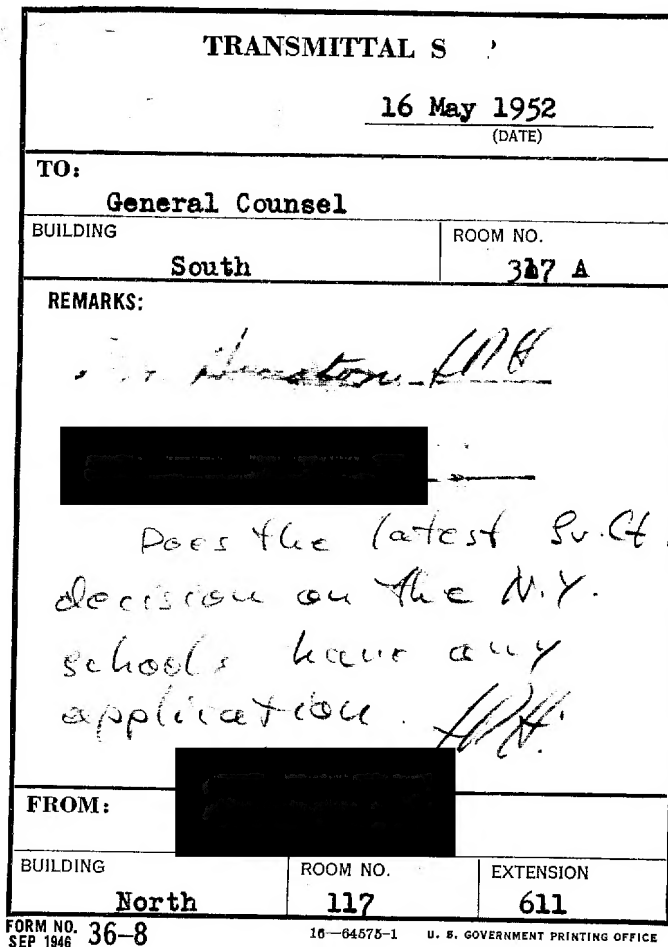 TRANSMITTAL S
16 May 1952
(DATE)
TO:
General Counsel
BUILDING
ROOM NO.
South
317 A
REMARKS:
Houston LRH
Does the latest Su.Ct.
decision on the N.Y.
schools have any
application. LRH.
FROM:
BUILDING
ROOM NO.
EXTENSION
North
117
611
FORM NO.
SEP 1946
36-8
16—64575-1
U. S. GOVERNMENT PRINTING OFFICE